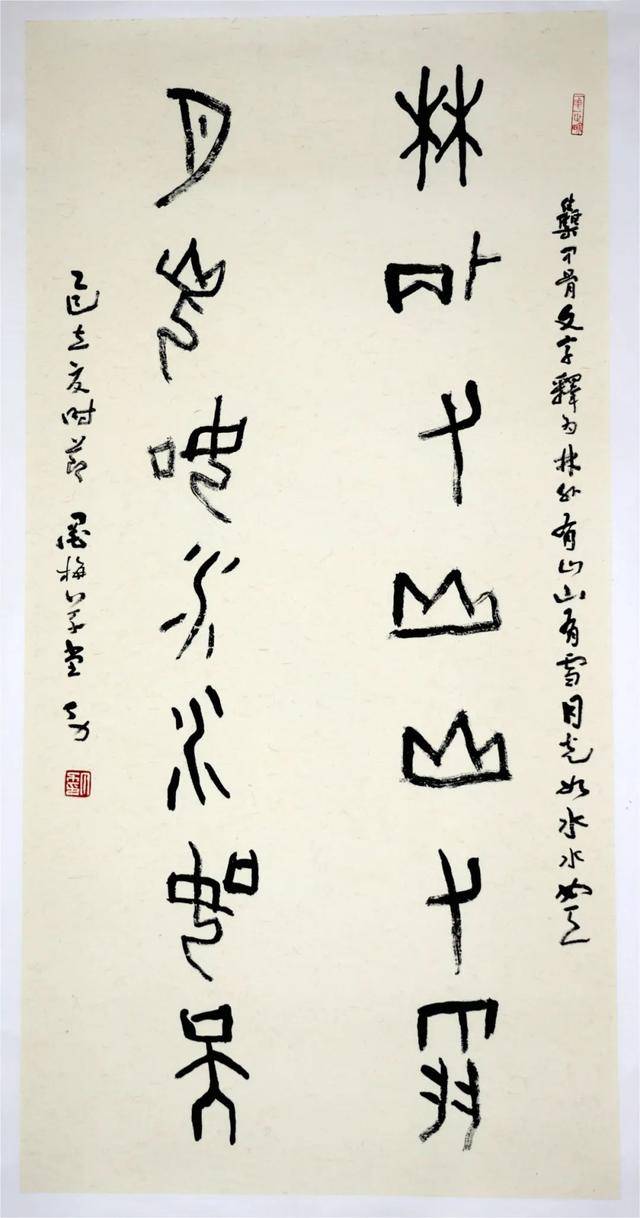 集甲骨文字釋为林外有山山有雪月光如水水如天
林外有山山有雪
月光如水水如天
乙巳立夏时節 梅草堂